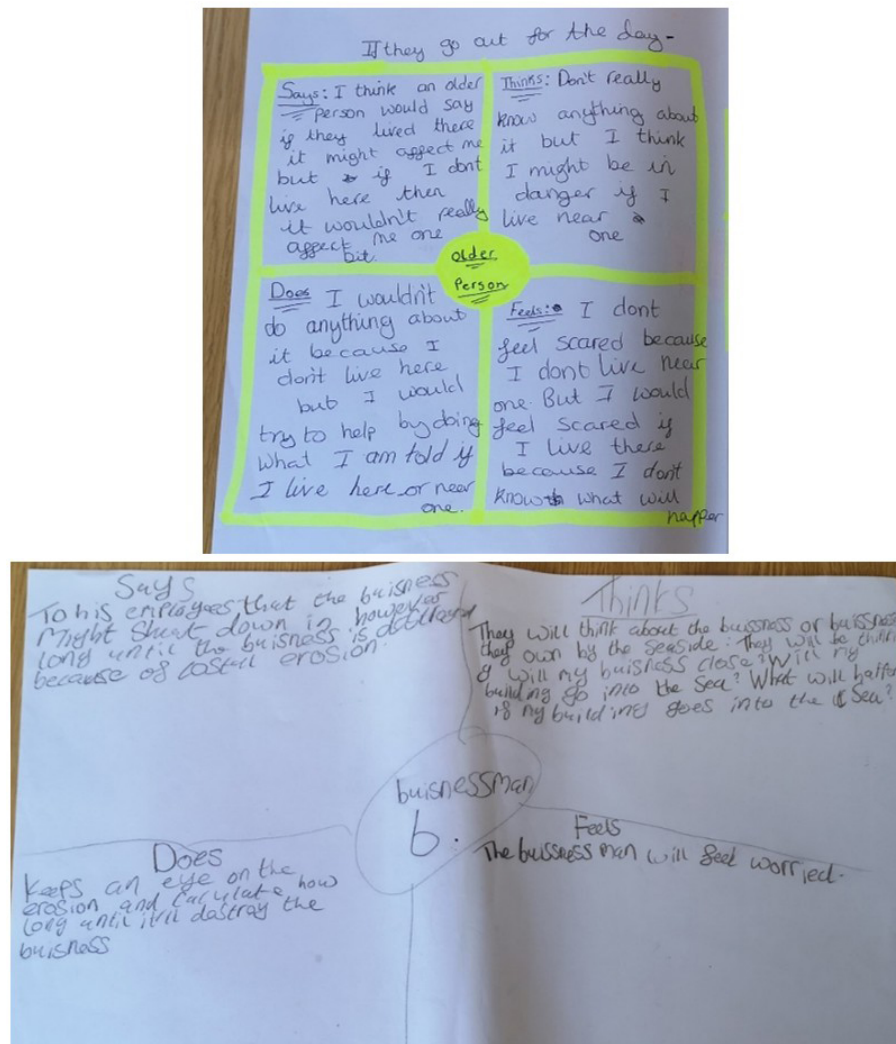 If they go out for the day-
Says: I think an older
person would say
if they lived there
it might affect me
but if I dont
live here then
it wouldn't really
affect me one
bit.
Thinks: Don't really
know anything about
it but I think
I might be in
danger if I
live near
one
Older
Person
Does I wouldn't
do anything about
it because I
don't live here
but I would
try to help by doing
what I am told if
I live here or near
one.
Feels: I dont
feel scared because
I dont live near
one. But I would
feel scared if
I live there
because I don't
know what will
happer
Says
To his employees that the buisness
Might Shut down in however
long until the buisness is
because of costall erosion.
Thinks
They will think about the buissness or buissness
they own by the seaside. They will be think
will my buisness close? Will my
building go into the Sea? What will
if my building goes into the Sea?
buisnessman
6.
Does
Keeps an eye on the
erosion and calculate how
long until it'll dastray the
buisness
Feels
The buissness man will feel worried.